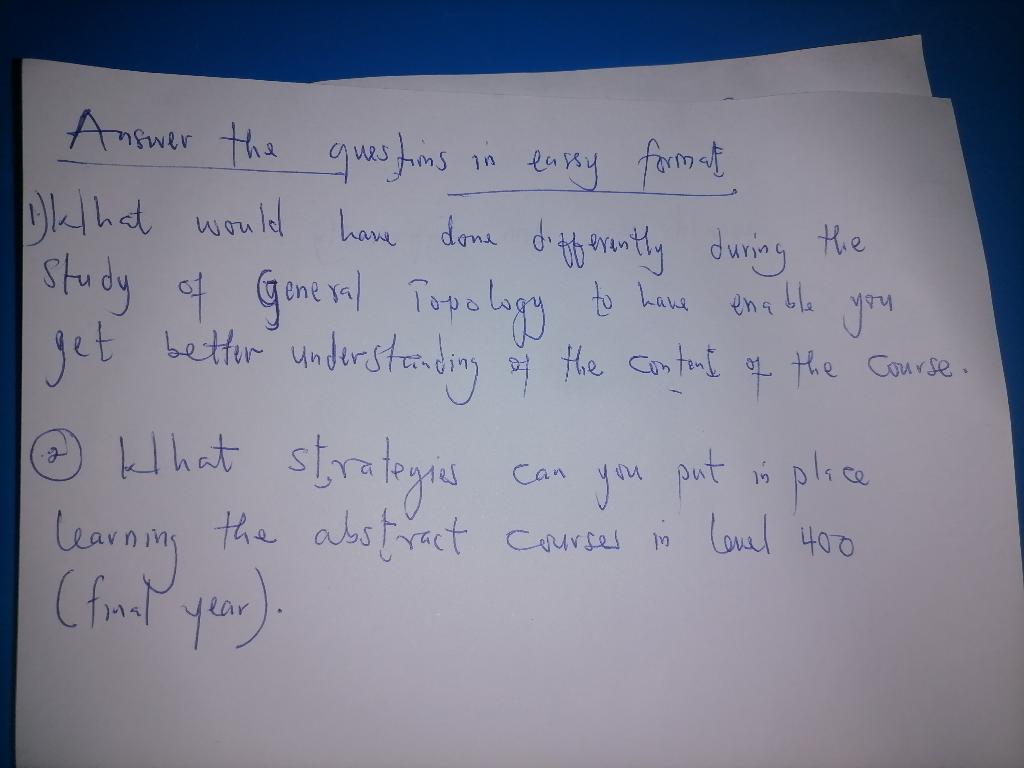 Answer the questions in eassy format
1) What would have done differently during the
study of General Topology to have enable you
get better understanding of the content of the course.
2 What strategies can you put in place
learning the abstract courses in level 400
(final year).